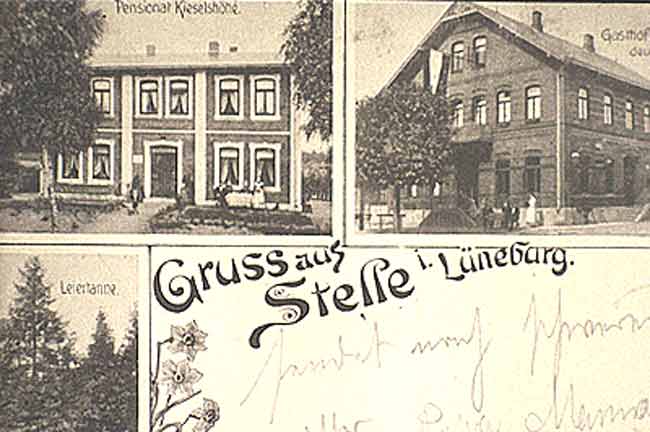 Pensionat Kieselshöhe.
Gasthof
Leiertanne.
Gruss aus
Stelle i. Lüneburg.
sendet noch